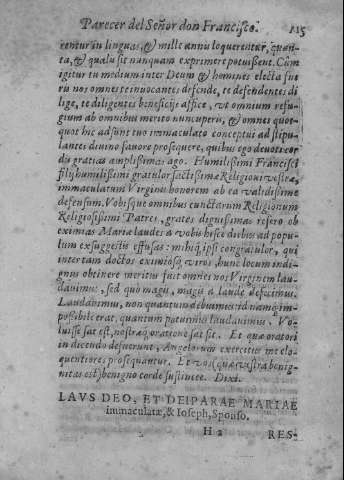 Parecer del Señor don Francisco. 115
rentur in linguas, & mille annis loquerentur, quan-
ta, & qualis sit nunquam exprimere potuissent. Cùm
igitur tu medium inter Deum & homines electa sue
ris nos omnes te invocantes defende, te defendentes di
lige, te diligentes beneficijs affice, ut omnium refu-
gium ab omnibus merito nuncuperis, & omnes quot-
quot hic adsunt tuo immaculato conceptui adstipu-
lantes divino favore prosequere, quibus ego devoti cor
dis gratias amplissimas ago. Humilissimi Francisci
filij humilissimi gratulor sactissimæ Religioni vestræ,
immaculatum Virginis honorem ab ea validissime
defensum. Vobisque omnibus cunctarum Religionum
Religiosissimi Patres, grates dignissimas refero ob
eximias Mariæ laudes a vobis hisce diebus ad popu-
lum ex suggestis effusas: mihiq; ipsi congratulor, qui
inter tam doctos eximiosq; viros, hunc locum indi-
gnus obtinere meritus fact omnes nos Virginem lau-
davimus, sed quò magis, magis à laude defecimus.
Laudavimus, non quantum debuimus id namq; im-
possibile erat, quantum potuimus laudavimus. Vo-
luisse sat est, nostræq; orationi sat sit. Et quæ oratori
in dicendo defuerunt, Angelorum exercitus me elo-
quentiores prosequantur. Et vos quæ vestra benig-
nitas est, benigno corde sustinete. Dixi.
LAVS DEO, ET DEIPARAE MARIAE
immaculatæ, & Ioseph, Sponso.
H 2 RES-